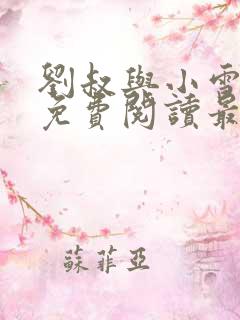 劉叔與小雪
免費閱讀最
蘇菲亞